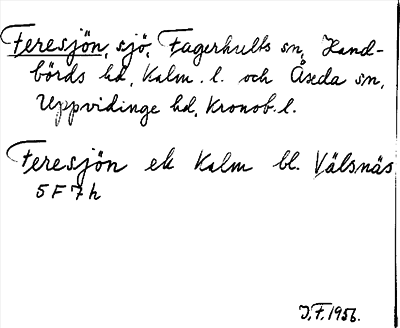 Feresjön, sjö, Fagerhults sn, Hand-
börds hd, Kalm. l. och Åseda sn,
Uppvidinge hd, Kronob. l.
Feresjön ek Kalm bl. Välsnäs
5 F 7 h
J.F. 1956.